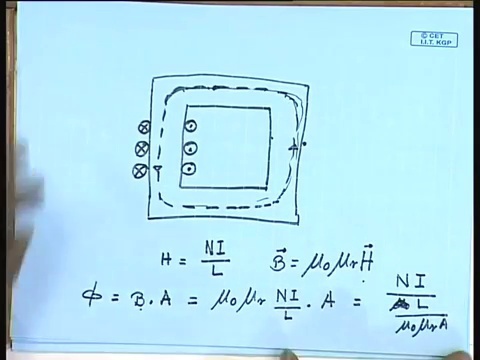 © CET
I.I.T. KGP
H = NI/L    B⃗ = μ₀ μr H⃗
φ = B . A = μ₀ μr NI/L . A = NI / (L / μ₀ μr A)